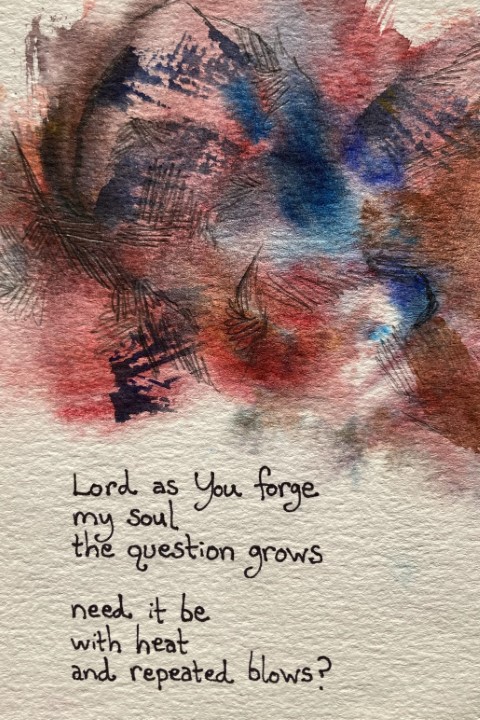 Lord as You forge
my soul
the question grows
need it be
with heat
and repeated blows?